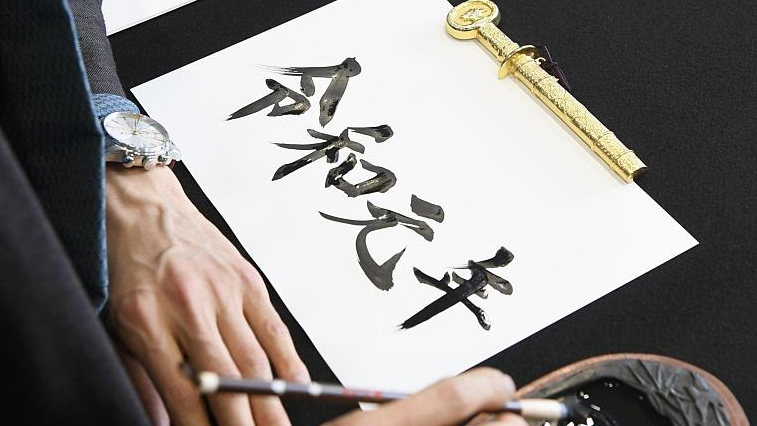 令和元年